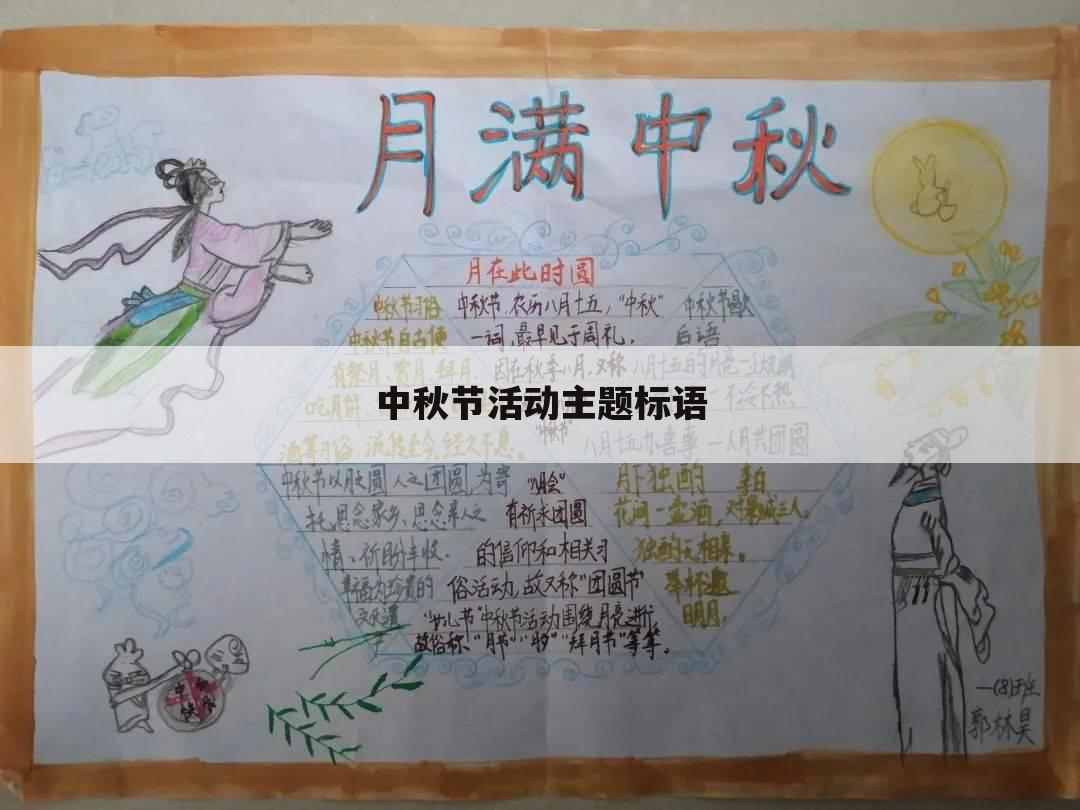 月满中秋
月在此时圆
中秋节习俗
中秋节自古便
有祭月、赏月、拜月、
吃月饼、
酒等习俗,流传至今,经久不息。
中秋节以月之圆 人之团圆,为寄
托思念家乡、思念亲人之
情、祈盼丰收、
幸福,为珍贵的
文化遗
中秋节,农历八月十五,"中秋"
一词,最早见于周礼。
因在秋季八月,又称
"八月会"
有祈求团圆
的信仰和相关习
俗活动,故又称"团圆节"
"女儿节"中秋节活动围绕月亮进行
故俗称"月节""月夕""拜月节"等等。
中秋节歇
白语
八月十五的月亮
一不冷不热
八月十五办喜事 一人月共团圆
月下独酌 李白
花间一壶酒,对影成三人。
独酌无相亲。
举杯邀
明月,
中秋节活动主题标语
中秋快乐
一(8)班
郭林昊